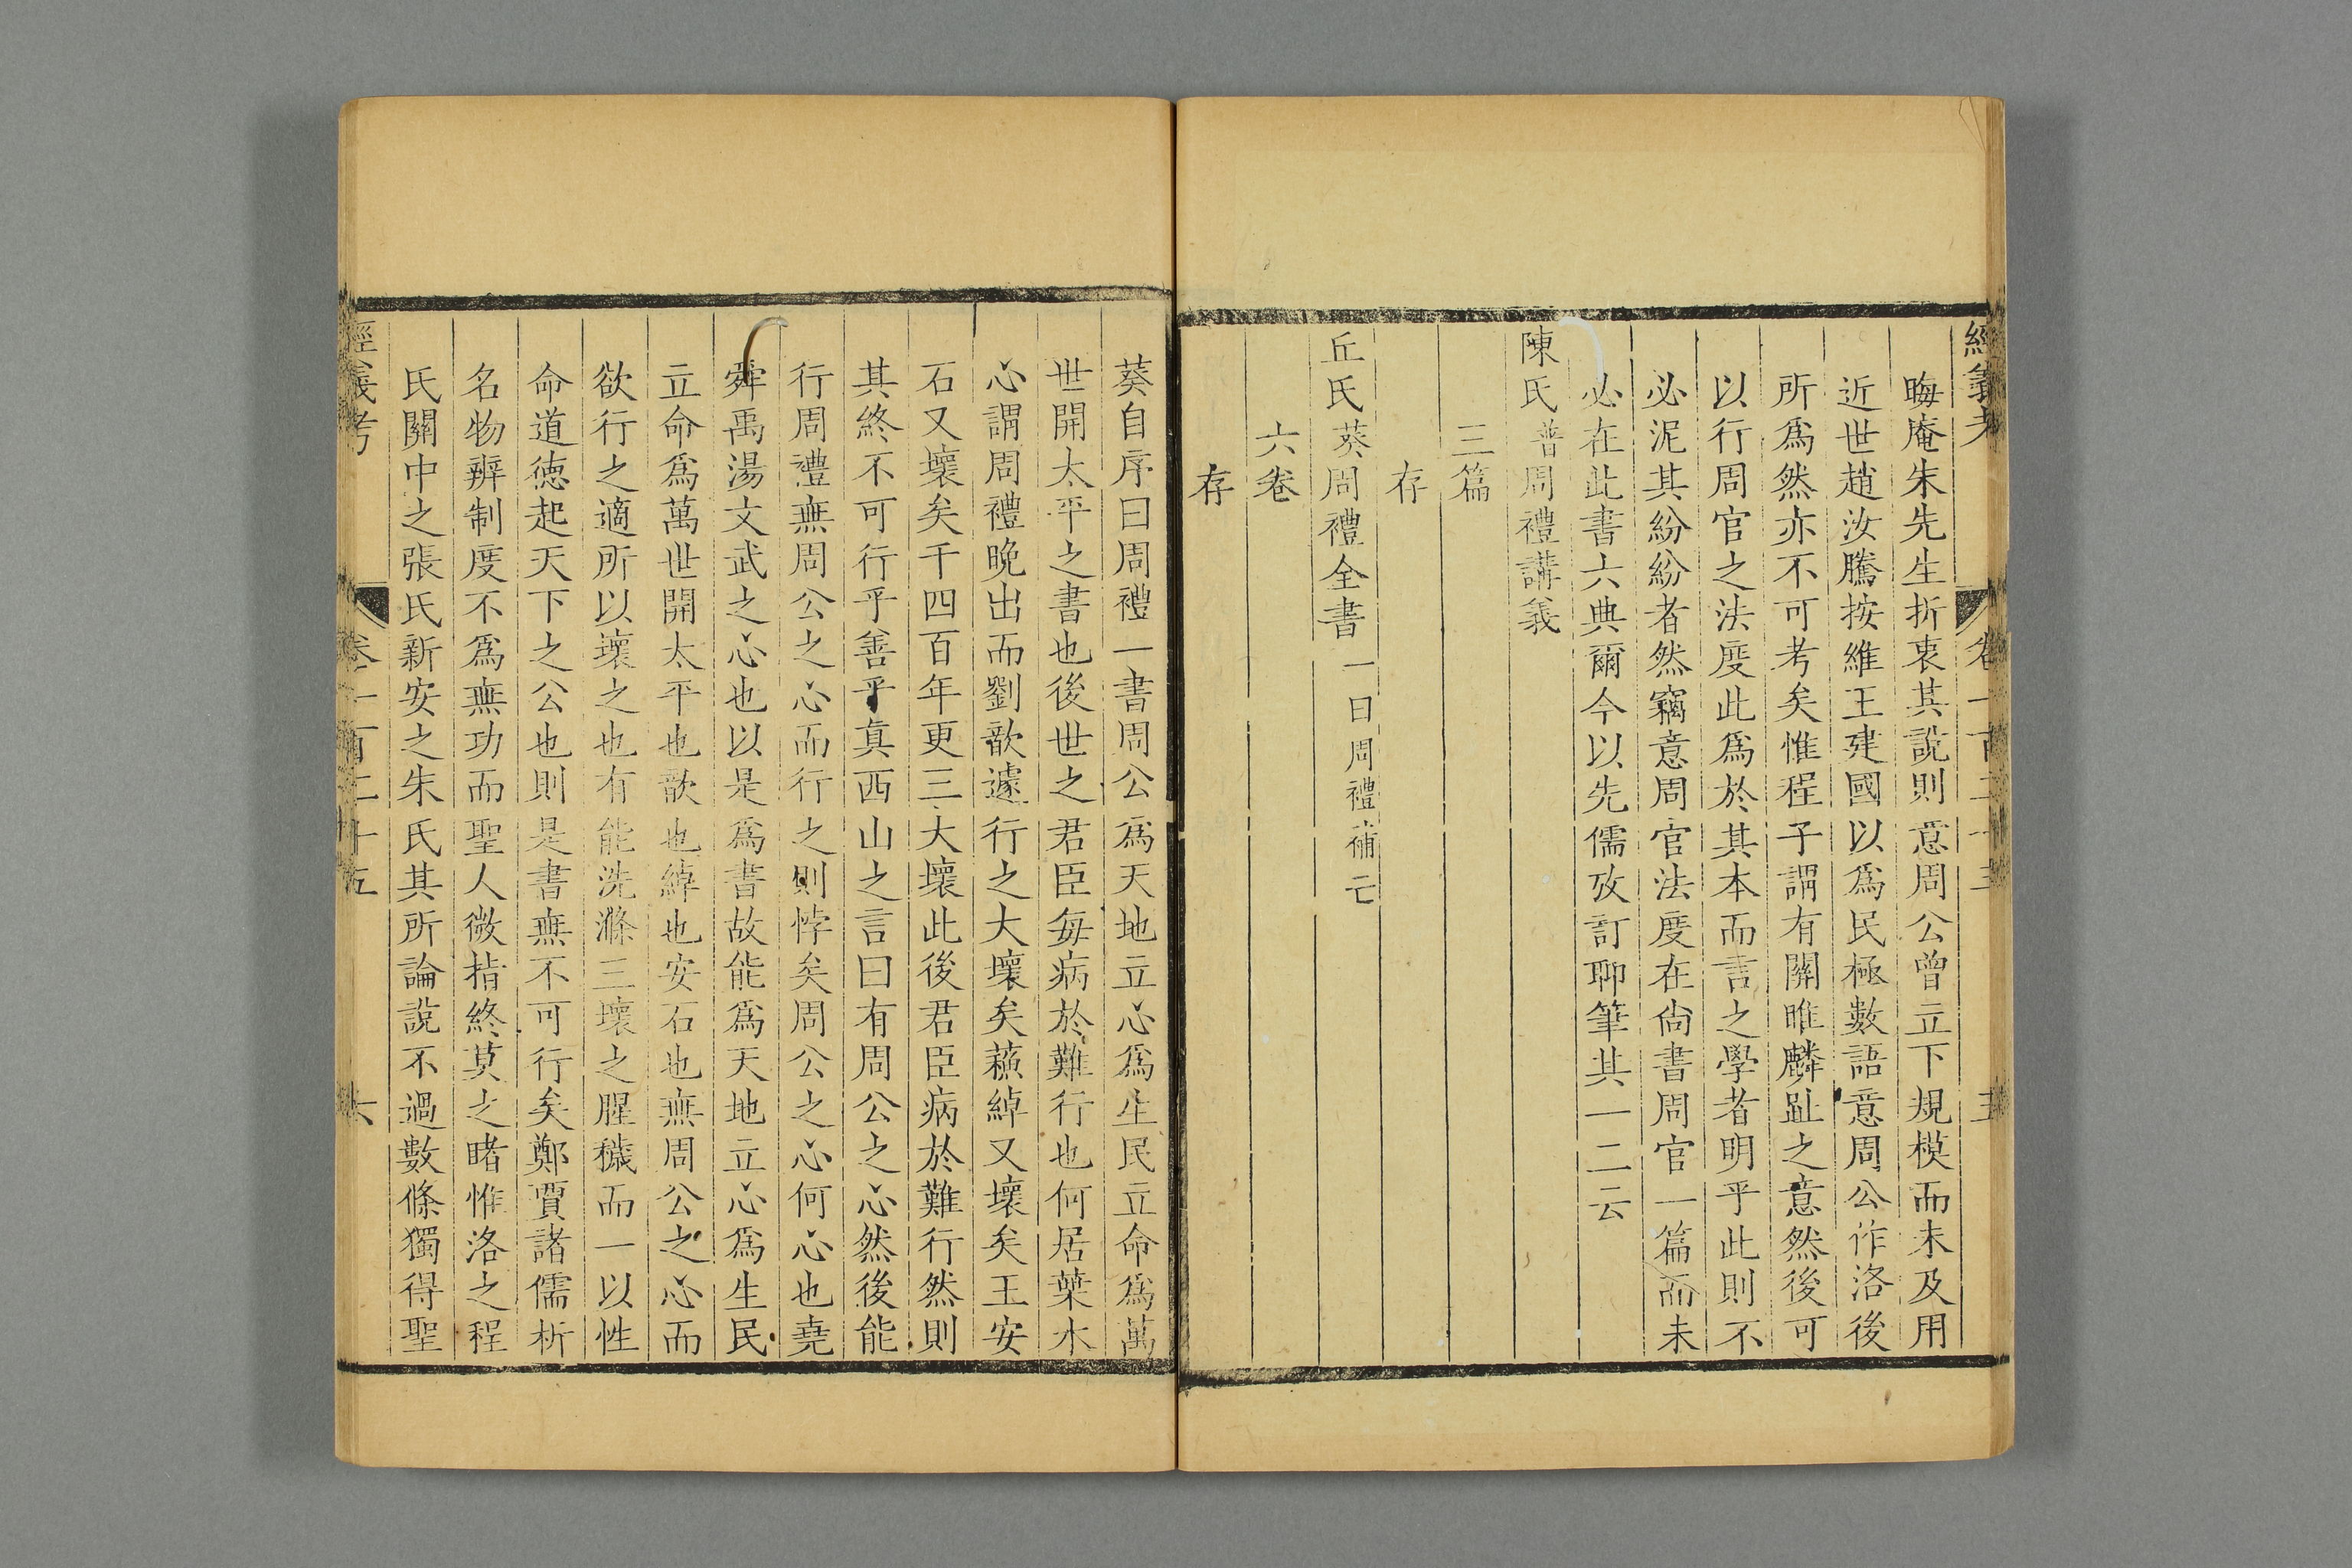 經義考 卷一百二十五 五
晦庵朱先生折衷其說則意周公曾立下規模而未及用
近世趙汝騰按維王建國以爲民極數語意周公作洛後
所爲然亦不可考矣惟程子謂有關雎麟趾之意然後可
以行周官之法度此爲於其本而言之學者明乎此則不
必泥其紛紛者然竊意周官法度在尙書周官一篇而未
必在此書六典爾今以先儒攷訂聊筆其一二云
陳氏普周禮講義
三篇
存
丘氏葵周禮全書一曰周禮補亡
六卷
存
葵自序曰周禮一書周公爲天地立心爲生民立命爲萬
世開太平之書也後世之君臣每病於難行也何居葉水
心謂周禮晚出而劉歆遽行之大壞矣蘇綽又壞矣王安
石又壞矣千四百年更三大壞此後君臣病於難行然則
其終不可行乎善乎真西山之言曰有周公之心然後能
行周禮無周公之心而行之則悖矣周公之心何心也堯
舜禹湯文武之心也以是爲書故能爲天地立心爲生民
立命爲萬世開太平也歆也綽也安石也無周公之心而
欲行之適所以壞之也有能洗滌三壞之腥穢而一以性
命道德起天下之公也則是書無不可行矣鄭賈諸儒析
名物辨制度不爲無功而聖人微㫖終莫之睹惟洛之程
氏關中之張氏新安之朱氏其所論說不過數條獨得聖
經義考 卷一百二十五 六